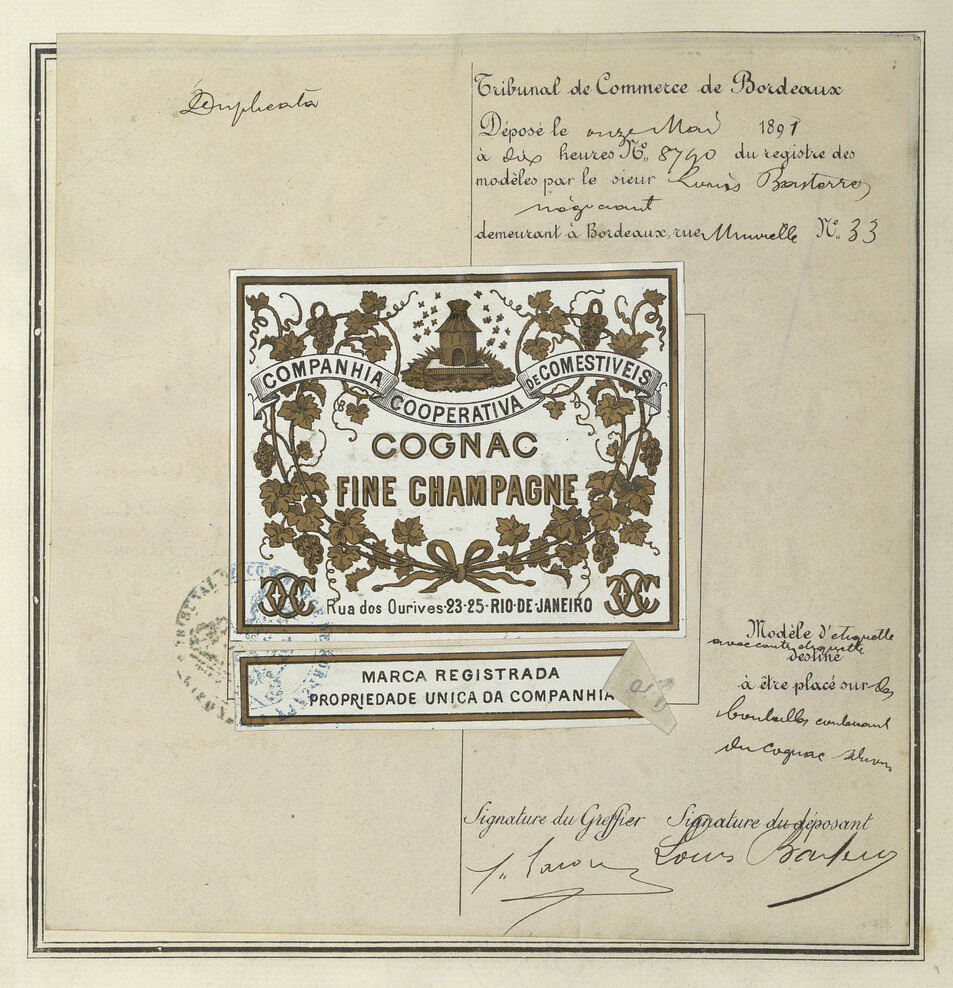 Duplicata
Tribunal de Commerce de Bordeaux
Déposé le onze Mai 1891
à dix heures No. 8790 du registre des
modèles par le sieur Louis
négociant
demeurant à Bordeaux, rue No. 33
COMPANHIA COOPERATIVA DE COMESTIVEIS
COGNAC
FINE CHAMPAGNE
Rua dos Ourives·23·25·RIO·DE·JANEIRO
MARCA REGISTRADA
PROPRIEDADE UNICA DA COMPANHIA
TRIBUNAL DE COMMERCE DE BORDEAUX
Modèle d'étiquette
avec contre étiquette
destiné
à être placé sur des
bouteilles contenant
du cognac
Signature du Greffier Signature du déposant
Louis